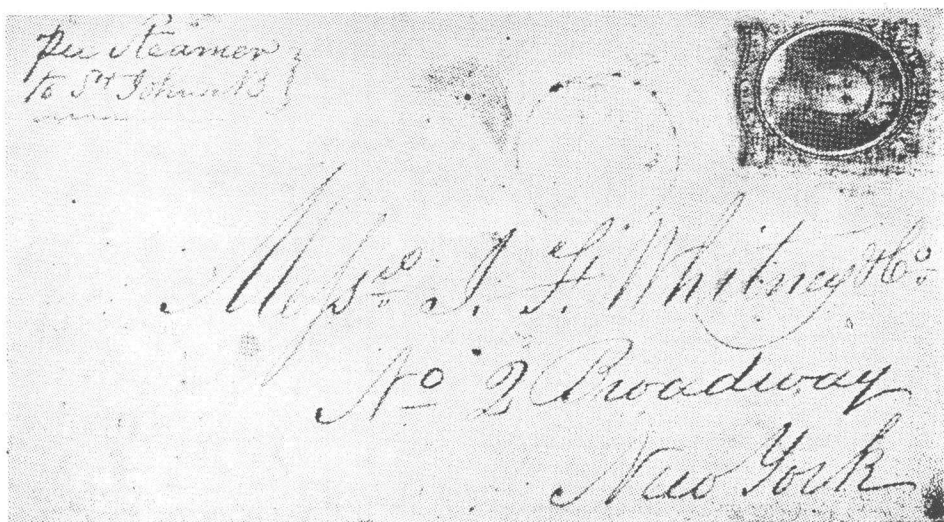 per Steamer
to St John NB
Messrs J. F. Whitney & Co.
No 2 Broadway
New York